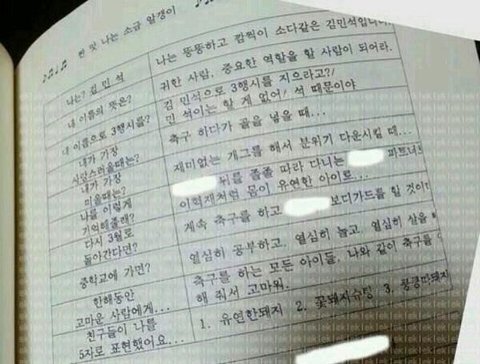 ♪♫♩♪ 짠 맛 나는 소금 알갱이
나는? 김 민 석
나는 뚱뚱하고 깜찍이 소다같은 김민석입니
내 이름의 뜻은?
귀한 사람, 중요한 역할을 할 사람이 되어라.
내 이름으로 3행시를?
김 민석으로 3행시를 지으라고?!
민 석이는 할 게 없어! 석 때문이야
내가 가장
사랑스러울때는?
축구 하다가 골을 넣을 때...
내가 가장
미울때는?
재미없는 개그를 해서 분위기 다운시킬 때...
나를 이렇게
기억해줄래?
뒤를 졸졸 따라 다니는 파트너
이학재처럼 몸이 유연한 아이로...
다시 3월로
돌아간다면?
계속 축구를 하고 보디가드를 할 것이
중학교에 가면?
열심히 공부하고, 열심히 놀고, 열심히 살을
한해동안
고마운 사람에게...
축구를 하는 모든 아이들, 나와 같이 축구를
해 줘서 고마워.
친구들이 나를
5자로 표현했어요...
1. 유연한돼지 2. 꽃돼지슈팅 3.